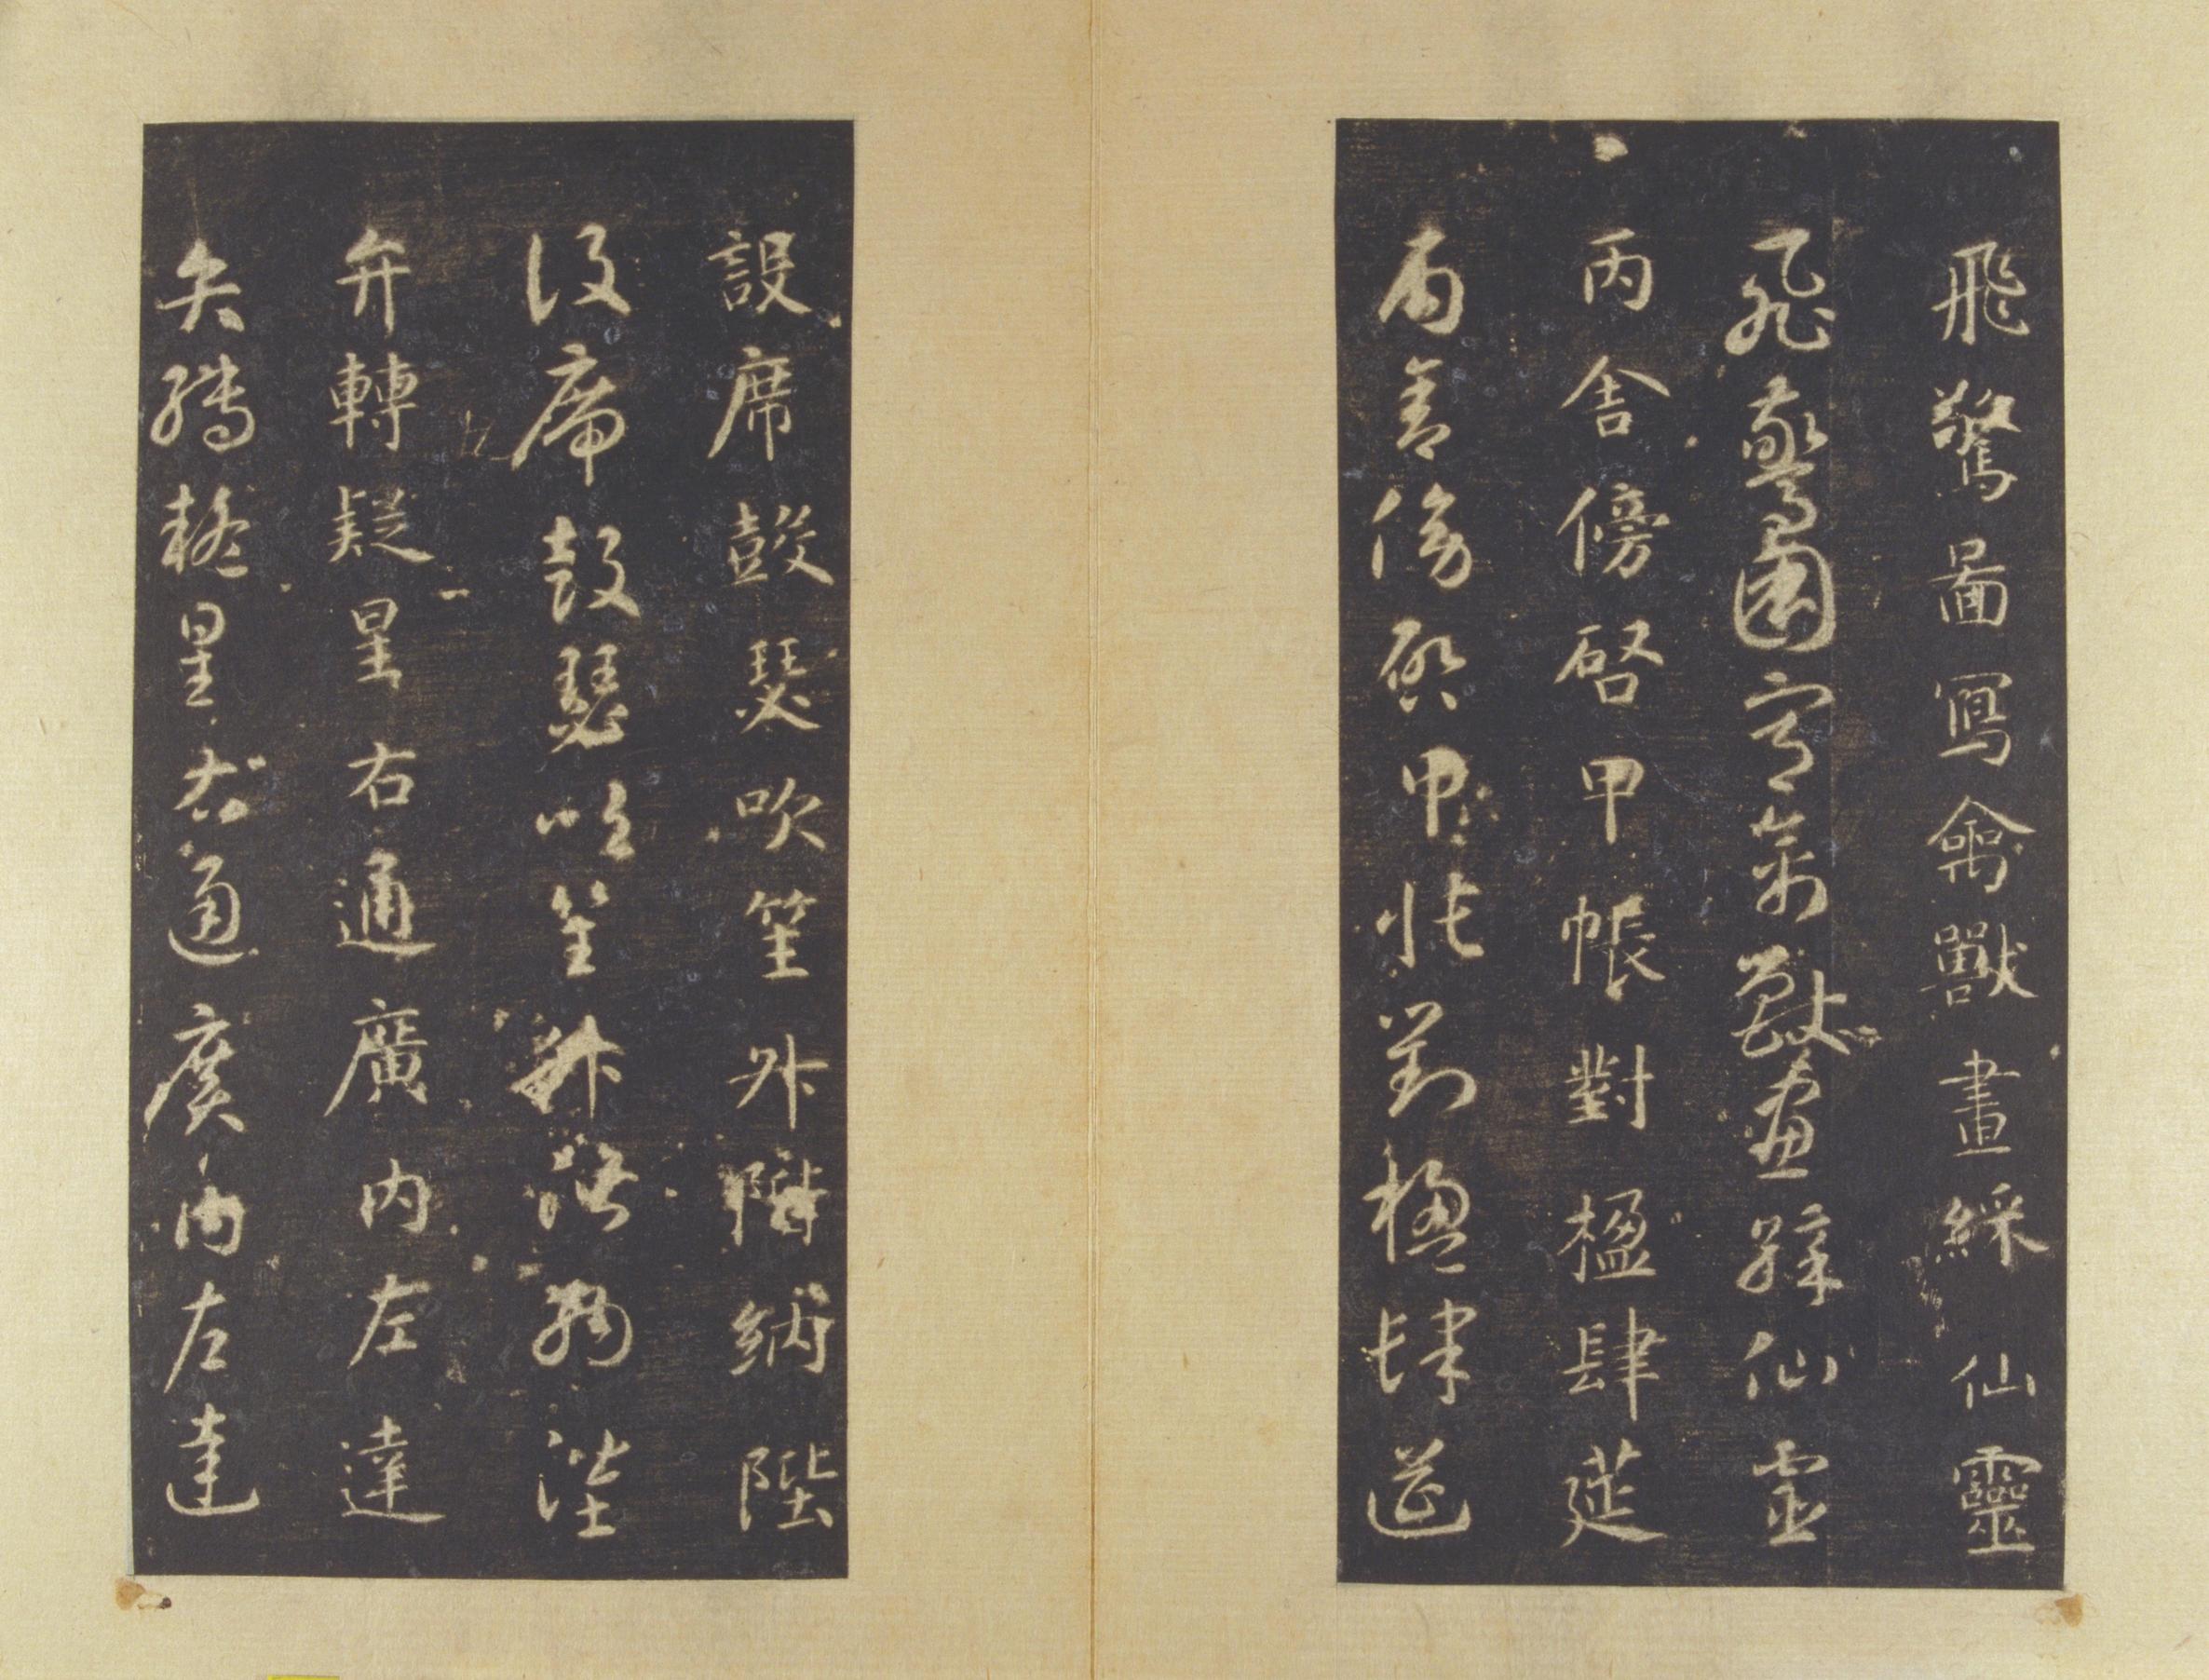 飛驚圖寫禽獸畫綵仙靈
飛驚圖寫禽獸畫綵仙靈
丙舍傍啓甲帳對楹肆筵
丙舍傍啓甲帳對楹肆筵
設席鼓瑟吹笙升階納陛
設席鼓瑟吹笙升階納陛
弁轉疑星右通廣内左達
弁轉疑星右通廣内左達